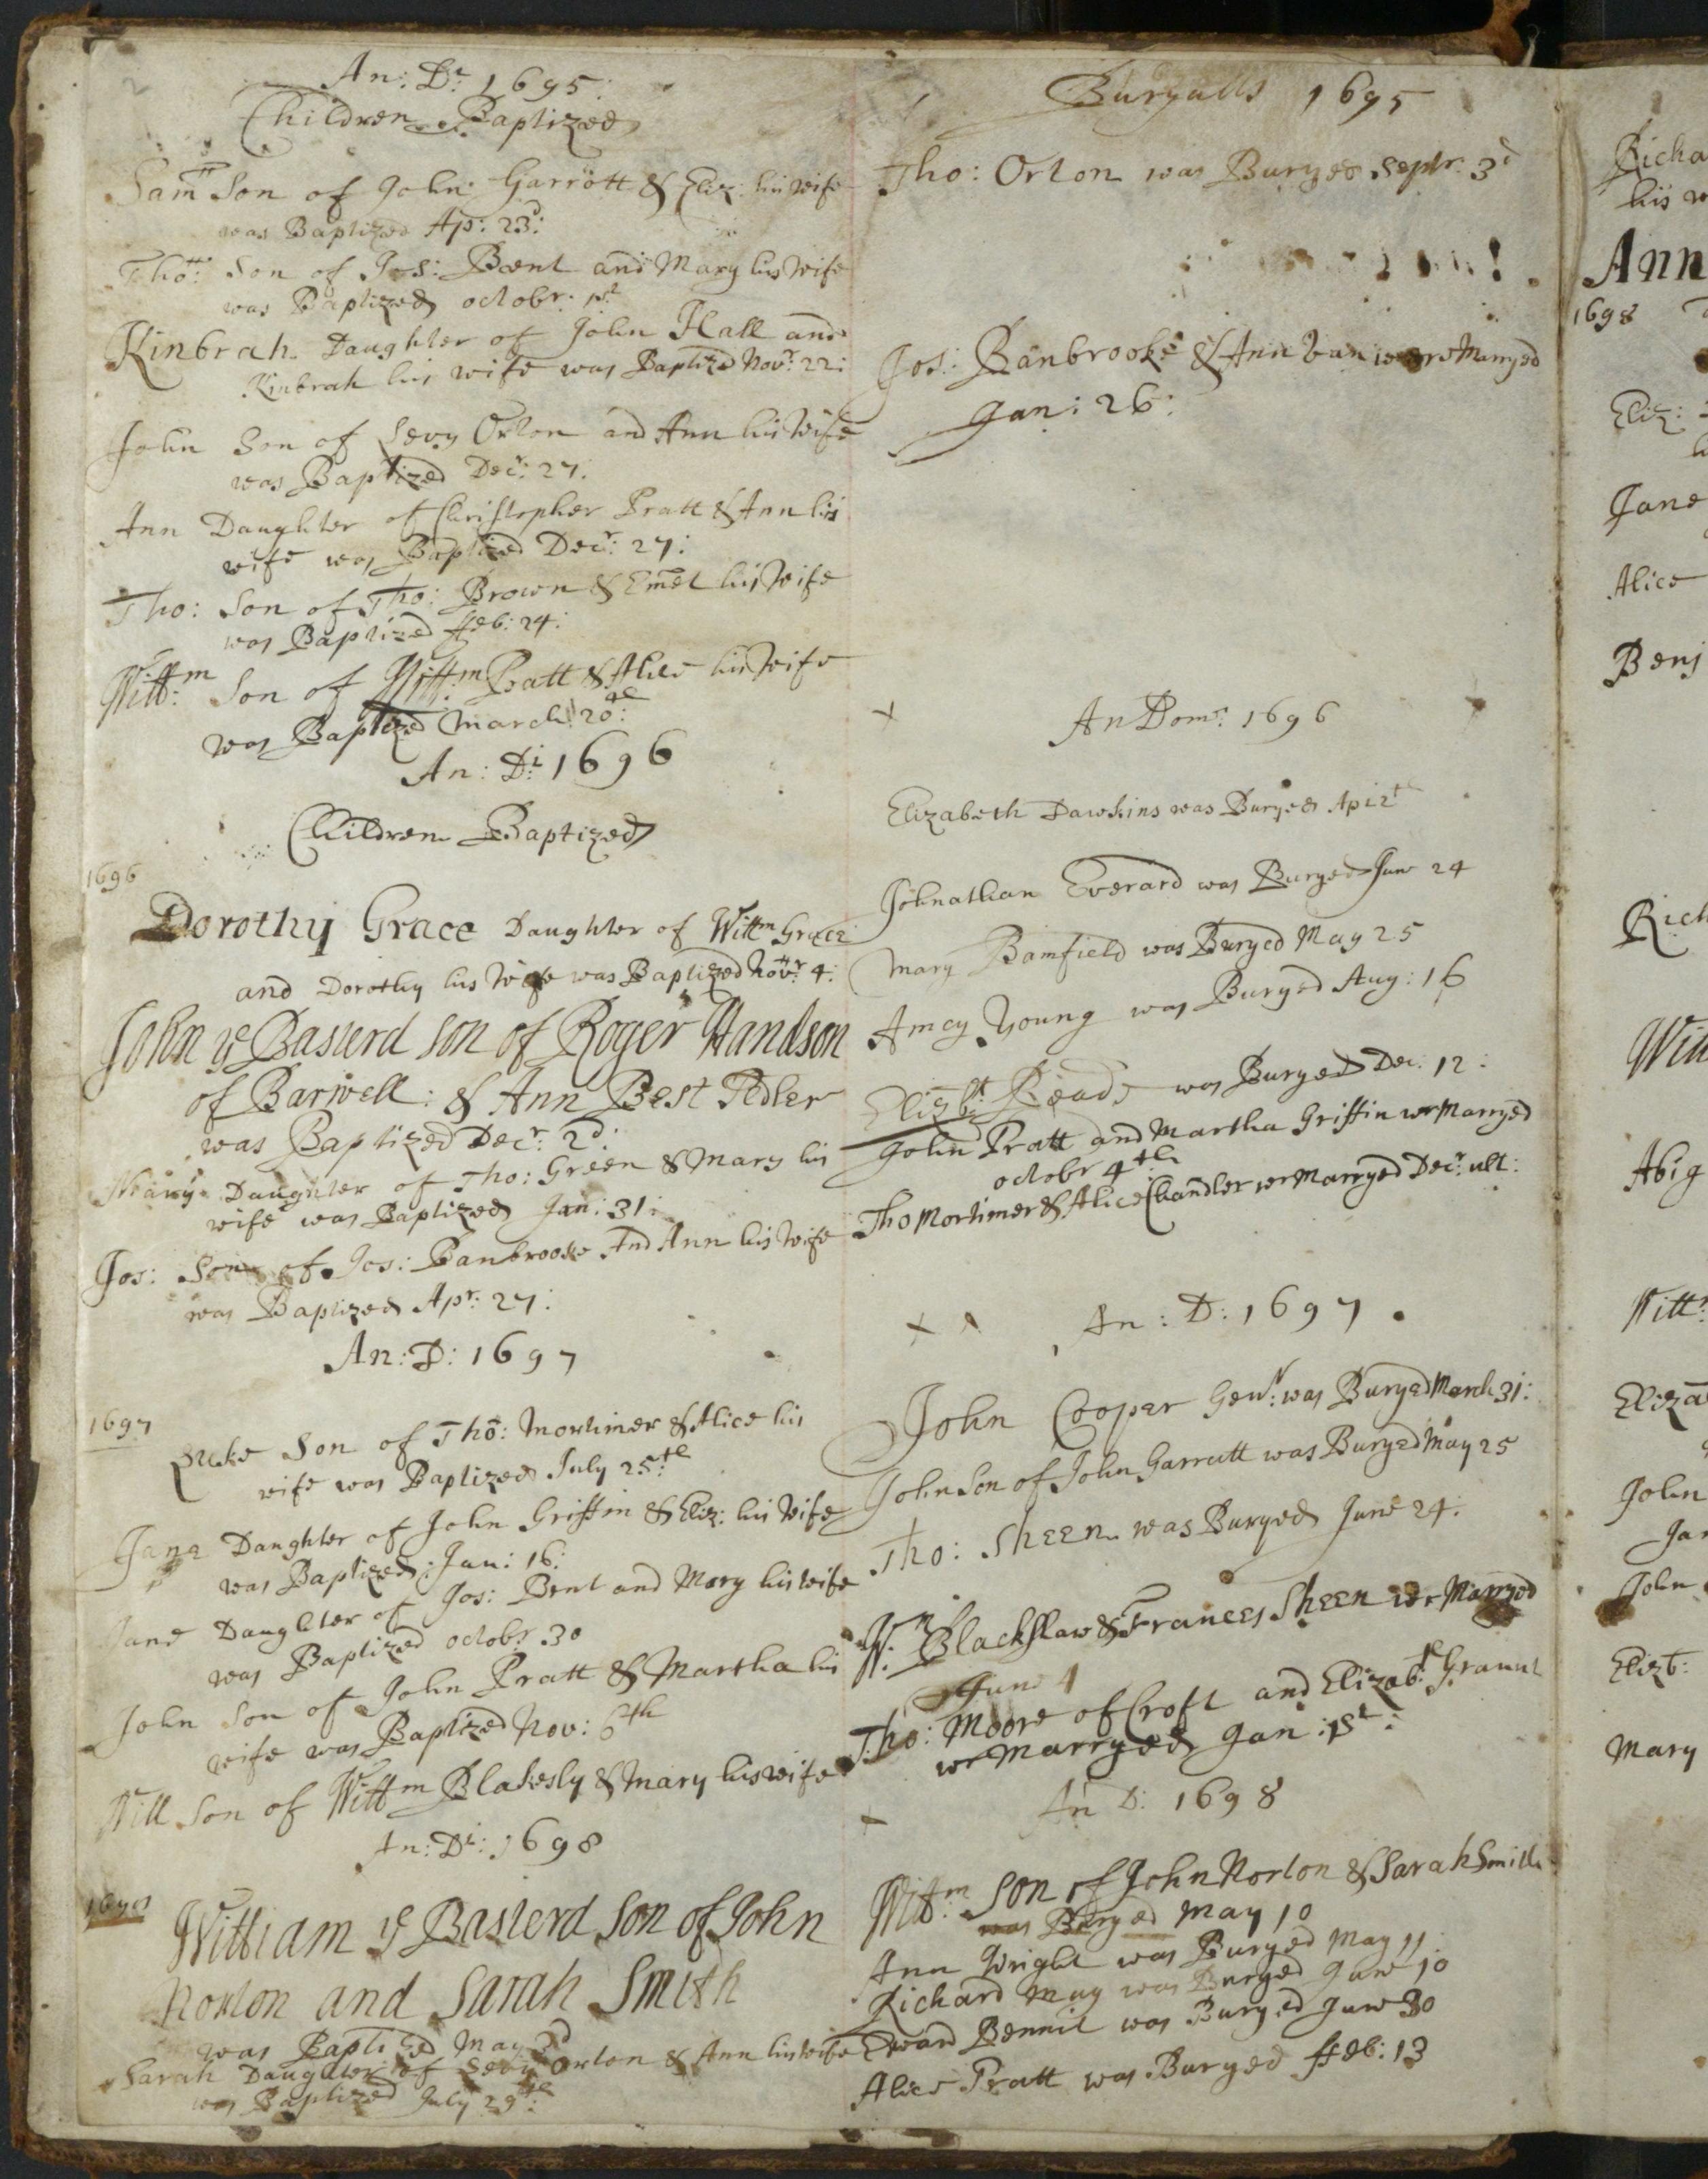 2
An: Di 1695:
Children Baptized
Samll Son of John: Garrott & Eliz: his wife
was Baptized Ap: 23d:
Tho: Son of Jos: Bent and Mary his Wife
was Baptized octobr: 1st
Kinbrah Daughter of John Hall and
Kinbrah his wife was Baptized Novr: 22:
John Son of Levy Orton and Ann his Wife
was Baptized Decr: 27:
Ann Daughter of Christopher Pratt & Ann his
wife was Baptized Decr: 27:
Tho: Son of Tho: Brown & Emet his Wife
was Baptized ffeb: 24:
Willm Son of Willm Pratt & Alice his Wife
was Baptized March 20th:
An: Di 1696
Children Baptized
1696
Dorothy Grace Daughter of Willm Grace
and Dorothy his Wife was Baptized Novr: 4:
John ye Basterd son of Roger Handson
of Barwell: & Ann Best
was Baptized Decr: 2d:
Mary Daughter of Tho: Green & Mary his
wife was Baptized Jan: 31:
Jos: Son of Jos: Banbrooke And Ann his Wife
was Baptized Apr: 27:
An: D: 1697
1697
Luke Son of Tho: Mortimer & Alice his
wife was Baptized July 25th
Jane Daughter of John Griffin & Eliz: his Wife
was Baptized: Jan: 16:
Jane Daughter of Jos: Bent and Mary his wife
was Baptized octobr 30
John Son of John Pratt & Martha his
wife was Baptized Nov: 6th
Will Son of Willm Blakesly & Mary his wife
An: Di: 1698
1698
William ye Basterd Son of John
Norton and Sarah Smith
was Baptized May 3d
Sarah Daughter of Levy Orton & Ann his wife
was Baptized July 29th:
Buryalls 1695
Tho: Orton was Buryed Septr: 3d
Jos: Banbrooke & Ann were Marryed
Jan: 26:
An Dom: 1696
Elizabeth Dawkins was Buryed Ap 12t
Johnathan Everard was Buryed June 24
Mary Bamfield was Buryed May 25
Amey Young was Buryed Aug: 16
Elizbt Reade was Buryed Dec: 12:
John Pratt and Martha Griffin wr Marryed
octobr 4th
Tho Mortimer & Alice Chandler wr Marryed Decr: ult:
An: D: 1697
John Cooper Gent: was Buryed March 31:
John Son of John Garrutt was Buryed May 25
Tho: Sheen was Buryed June 24:
Wm Blackslaw & Frances Sheen wr Marryed
June 4
Tho: Moore of Croft and Elizabt
wr Marryed Jan: 1st:
An D: 1698
Willm Son of John Norton & Sarah Smith
was Buryed May 10
Ann Wright was Buryed May 11
Richard May was Buryed June 10
Edward Bennit was Buryed June 30
Alice Pratt was Buryed ffeb: 13
Richa
his w
Ann
1698
Eliz:
Jane
Alice
Benj
Rich
Will
Abig
Will
Eliza
John
Jan
John
Elizb:
Mary